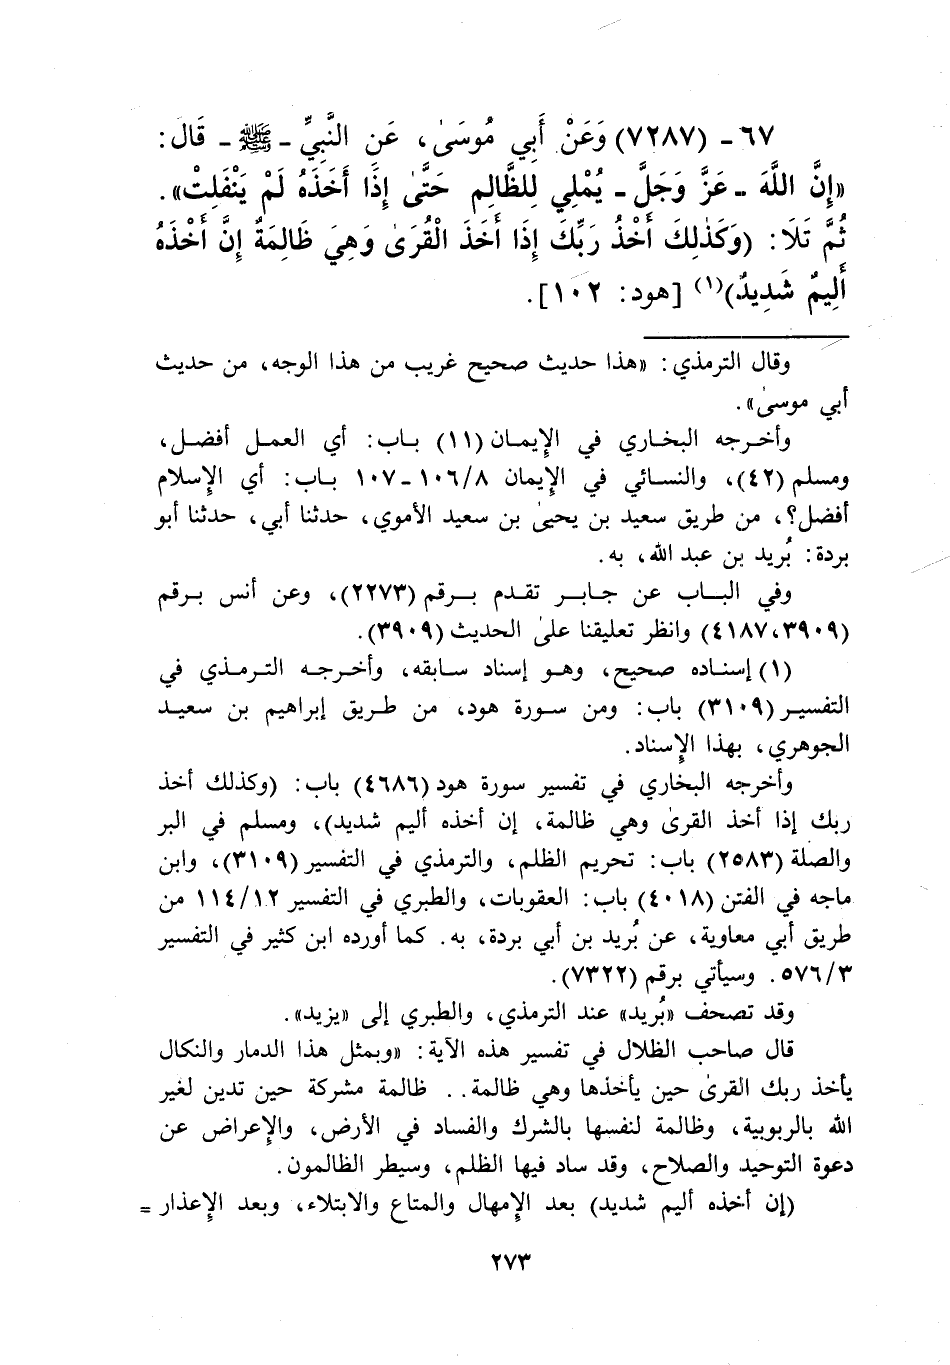 ٦٧ - (٧٢٨٧) وَعَنْ أَبِي مُوسَىٰ، عَنِ النَّبِيِّ - ﷺ - قَالَ:
«إِنَّ اللَّهَ - عَزَّ وَجَلَّ - يُمْلِي لِلظَّالِمِ حَتَّىٰ إِذَا أَخَذَهُ لَمْ يَنْفَلِتْ».
ثُمَّ تَلَا: (وَكَذٰلِكَ أَخْذُ رَبِّكَ إِذَا أَخَذَ الْقُرَىٰ وَهِيَ ظَالِمَةٌ إِنَّ أَخْذَهُ
أَلِيمٌ شَدِيدٌ)(١) [هود: ١٠٢].
وقال الترمذي: «هذا حديث صحيح غريب من هذا الوجه، من حديث
أبي موسىٰ».
وأخرجه البخاري في الإِيمان (١١) باب: أي العمل أفضل،
ومسلم (٤٢)، والنسائي في الإِيمان ١٠٦/٨ - ١٠٧ باب: أي الإِسلام
أفضل؟، من طريق سعيد بن يحيىٰ بن سعيد الأموي، حدثنا أبي، حدثنا أبو
بردة: بُريد بن عبد الله، به.
وفي الباب عن جابر تقدم برقم (٢٢٧٣)، وعن أنس برقم
(٣٩٠٩، ٤١٨٧) وانظر تعليقنا علىٰ الحديث (٣٩٠٩).
(١) إسناده صحيح، وهو إسناد سابقه، وأخرجه الترمذي في
التفسير (٣١٠٩) باب: ومن سورة هود، من طريق إبراهيم بن سعيد
الجوهري، بهذا الإِسناد.
وأخرجه البخاري في تفسير سورة هود (٤٦٨٦) باب: (وكذلك أخذ
ربك إذا أخذ القرىٰ وهي ظالمة، إن أخذه أليم شديد)، ومسلم في البر
والصلة (٢٥٨٣) باب: تحريم الظلم، والترمذي في التفسير (٣١٠٩)، وابن
ماجه في الفتن (٤٠١٨) باب: العقوبات، والطبري في التفسير ١١٤/١٢ من
طريق أبي معاوية، عن بُريد بن أبي بردة، به. كما أورده ابن كثير في التفسير
٥٧٦/٣. وسيأتي برقم (٧٣٢٢).
وقد تصحف «بُريد» عند الترمذي، والطبري إلى «يزيد».
قال صاحب الظلال في تفسير هذه الآية: «وبمثل هذا الدمار والنكال
يأخذ ربك القرىٰ حين يأخذها وهي ظالمة.. ظالمة مشركة حين تدين لغير
الله بالربوبية، وظالمة لنفسها بالشرك والفساد في الأرض، والإِعراض عن
دعوة التوحيد والصلاح، وقد ساد فيها الظلم، وسيطر الظالمون.
(إن أخذه أليم شديد) بعد الإِمهال والمتاع والابتلاء، وبعد الإِعذار =
٢٧٣